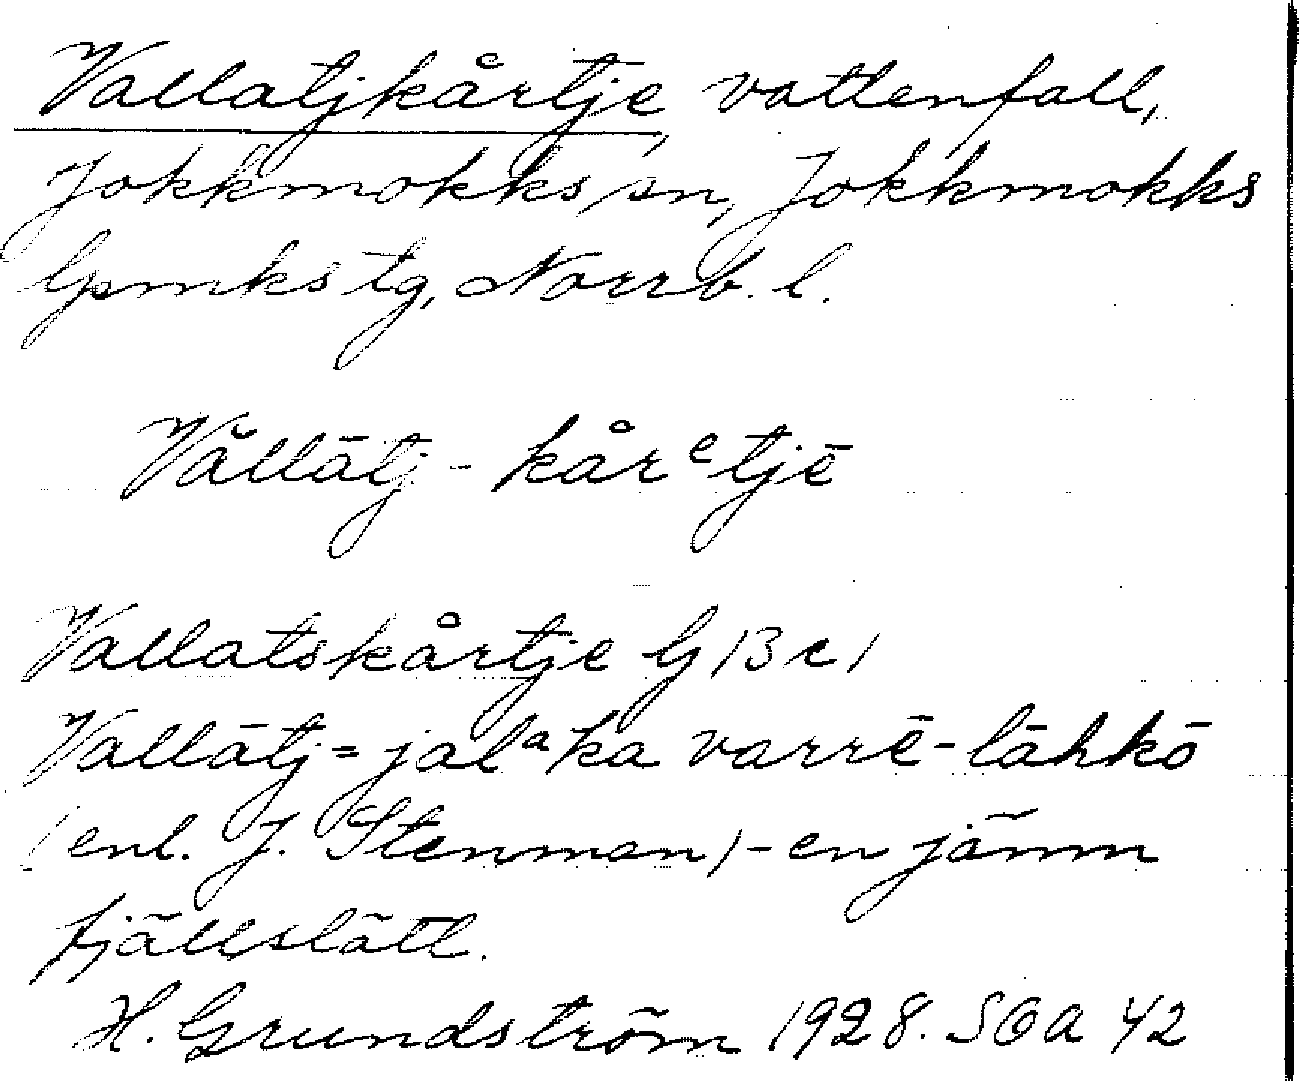 Vallatjkårtje, vattenfall,
Jokkmokks sn, Jokkmokks
lpmks tg, Norrb. l.
Vållātj - kårᵉtjē
Vallatskårtje G (3 c)
Vallātj = jalᵃka varrē-låhkō
(enl. J. Stenman) - en jämn
fjällslätt.
H. Grundström 1928. SOA 42